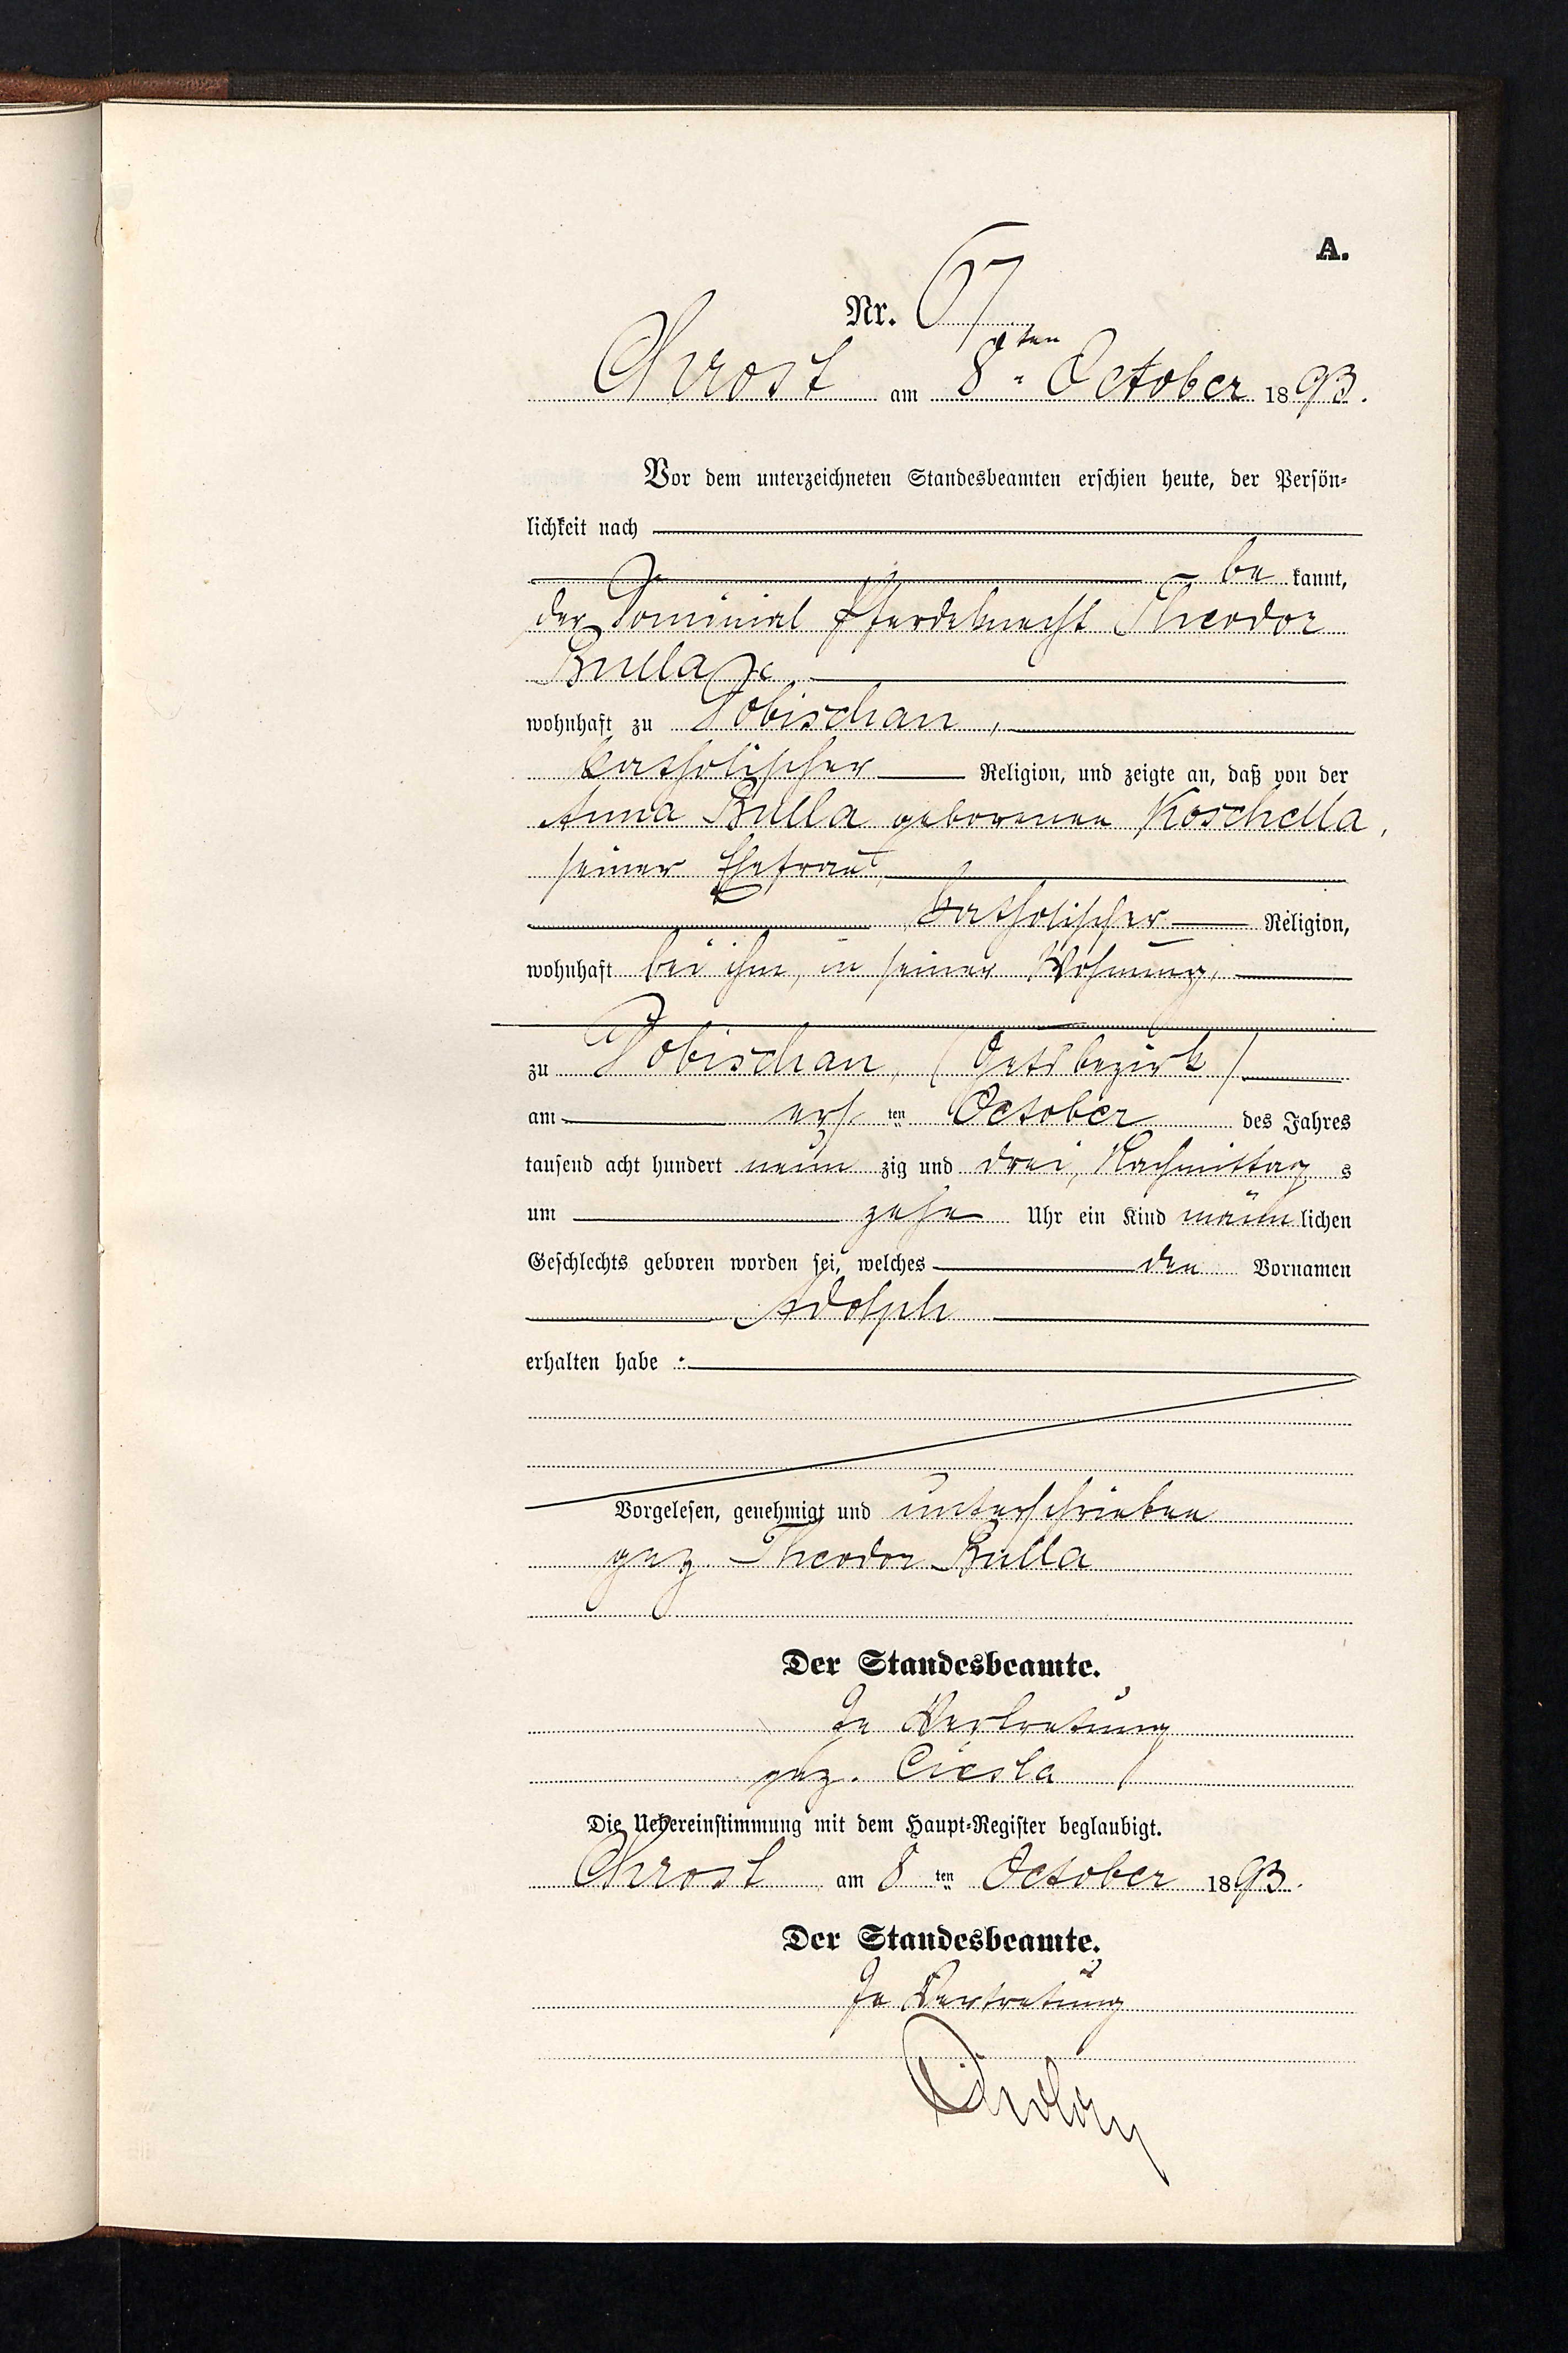 A.
Nr. 67
Chrost am 8ten October 1893.
Vor dem unterzeichneten Standesbeamten erschien heute, der Persön-
lichkeit nach
be kannt,
der Dominial Pferdeknecht Theodor
Bulla
wohnhaft zu Dobischau,
katholischer Religion, und zeigte an, daß von der
Anna Bulla geborenen Koschella,
seiner Ehefrau,
katholischer Religion,
wohnhaft bei ihm, in seiner Wohnung,
zu Dobischau, (Gutsbezirk)
am ersten October des Jahres
tausend acht hundert neun zig und drei, Nachmittag s
um zehn Uhr ein Kind männ lichen
Geschlechts geboren worden sei, welches den Vornamen
Adolph
erhalten habe.
Vorgelesen, genehmigt und unterschrieben
gez. Theodor Bulla
Der Standesbeamte.
In Vertretung
gez. Ciesla
Die Uebereinstimmung mit dem Haupt-Register beglaubigt.
Chrost am 8 ten October 1893.
Der Standesbeamte.
In Vertretung